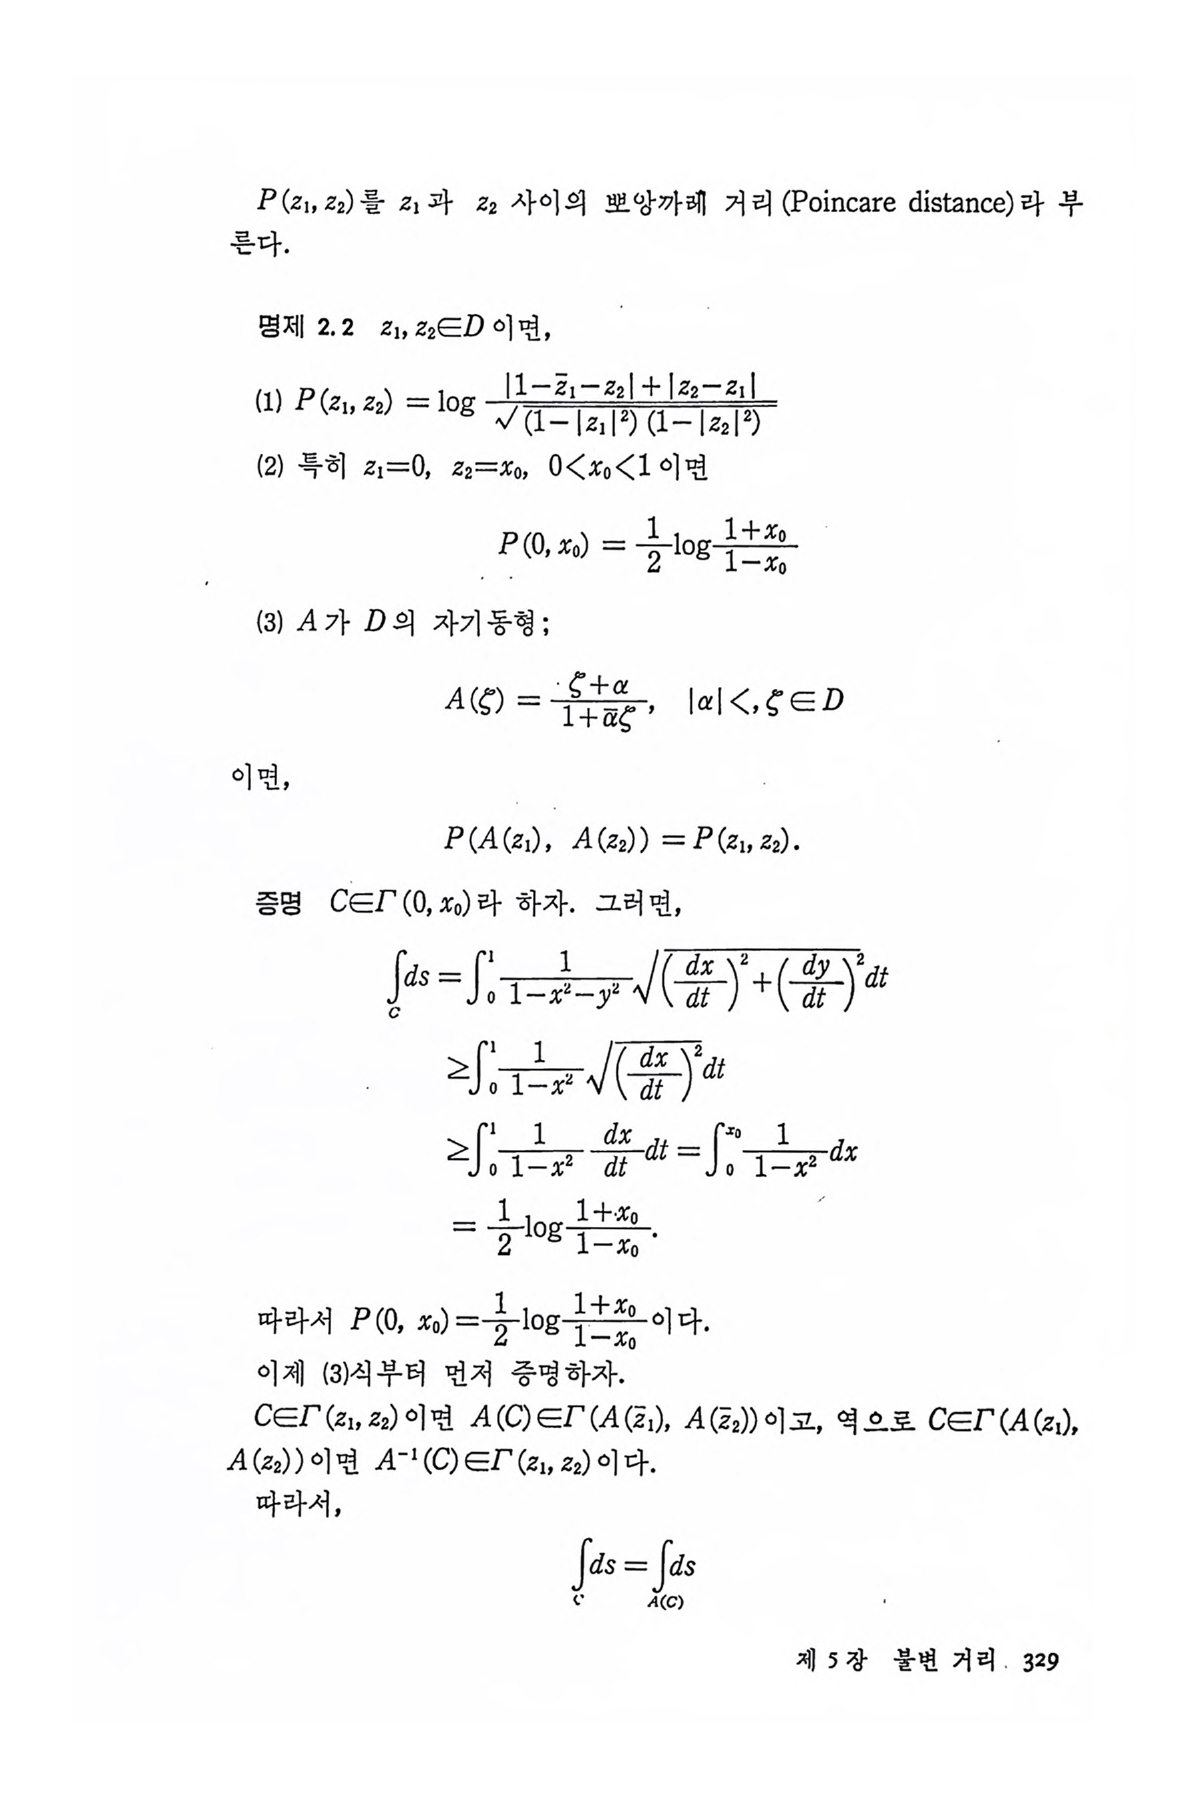 P(z₁, z₂)를 z₁과 z₂ 사이의 뽀앙까레 거리(Poincare distance)라 부
른다.
명제 2.2 z₁, z₂∈D이면,
(1) P(z₁, z₂) = log \frac{|1-\bar{z}₁-z₂|+|z₂-z₁|}{\sqrt{(1-|z₁|²)(1-|z₂|²)}}
(2) 특히 z₁=0, z₂=x₀, 0<x₀<1이면
P(0, x₀) = \frac{1}{2} log \frac{1+x₀}{1-x₀}
(3) A가 D의 자기동형;
A(ζ) = \frac{ζ+α}{1+\bar{α}ζ}, |α|<, ζ∈D
이면,
P(A(z₁), A(z₂)) = P(z₁, z₂).
증명 C∈Γ(0, x₀)라 하자. 그러면,
\int_C ds = \int_0^1 \frac{1}{1-x²-y²} \sqrt{(\frac{dx}{dt})²+(\frac{dy}{dt})²} dt
≥ \int_0^1 \frac{1}{1-x²} \sqrt{(\frac{dx}{dt})²} dt
≥ \int_0^1 \frac{1}{1-x²} \frac{dx}{dt} dt = \int_0^{x₀} \frac{1}{1-x²} dx
= \frac{1}{2} log \frac{1+x₀}{1-x₀}.
따라서 P(0, x₀) = \frac{1}{2} log \frac{1+x₀}{1-x₀}이다.
이제 (3)식부터 먼저 증명하자.
C∈Γ(z₁, z₂)이면 A(C)∈Γ(A(\bar{z}₁), A(\bar{z}₂))이고, 역으로 C∈Γ(A(z₁),
A(z₂))이면 A⁻¹(C)∈Γ(z₁, z₂)이다.
따라서,
\int_C ds = \int_{A(C)} ds
제 5 장 불변 거리 329